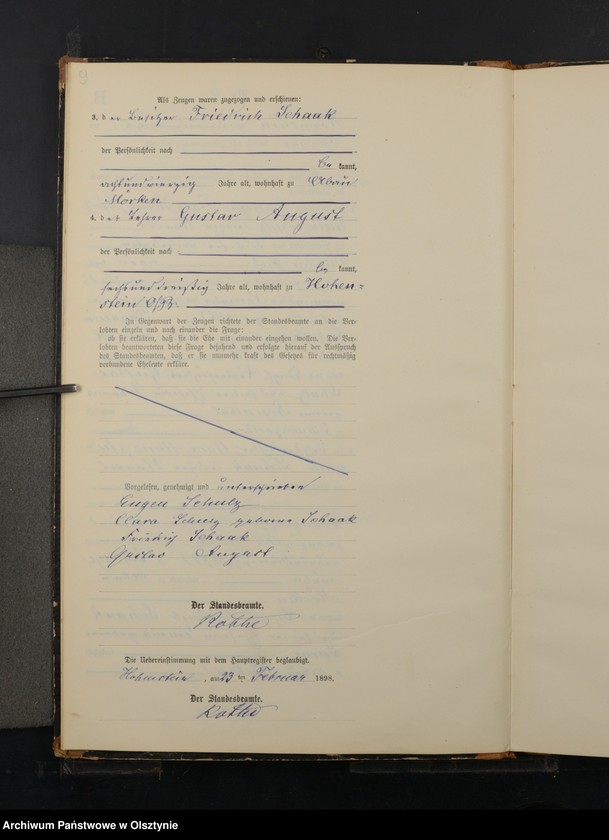 Als Zeugen waren zugezogen und erschienen:
3. der Besitzer Friedrich Schaak
der Persönlichkeit nach
be kannt,
achtundvierzig Jahre alt, wohnhaft zu
Mörken
4. der Lehrer Gustav August
der Persönlichkeit nach
be kannt,
sechsunddreißig Jahre alt, wohnhaft zu Hohen=
stein
In Gegenwart der Zeugen richtete der Standesbeamte an die Ver-
lobten einzeln und nach einander die Frage:
ob sie erklären, daß sie die Ehe mit einander eingehen wollen. Die Ver-
lobten beantworteten diese Frage bejahend und erfolgte hierauf der Ausspruch
des Standesbeamten, daß er sie nunmehr kraft des Gesetzes für rechtmäßig
verbundene Eheleute erkläre.
Vorgelesen, genehmigt und unterschrieben
Eugen Schulz
Clara Schulz geborene Schaak
Friedrich Schaak
Gustav August
Der Standesbeamte.
Rothe
Die Uebereinstimmung mit dem Hauptregister beglaubigt.
Hohenstein, am 23 ten Februar 1898.
Der Standesbeamte.
Rothe
Archiwum Państwowe w Olsztynie